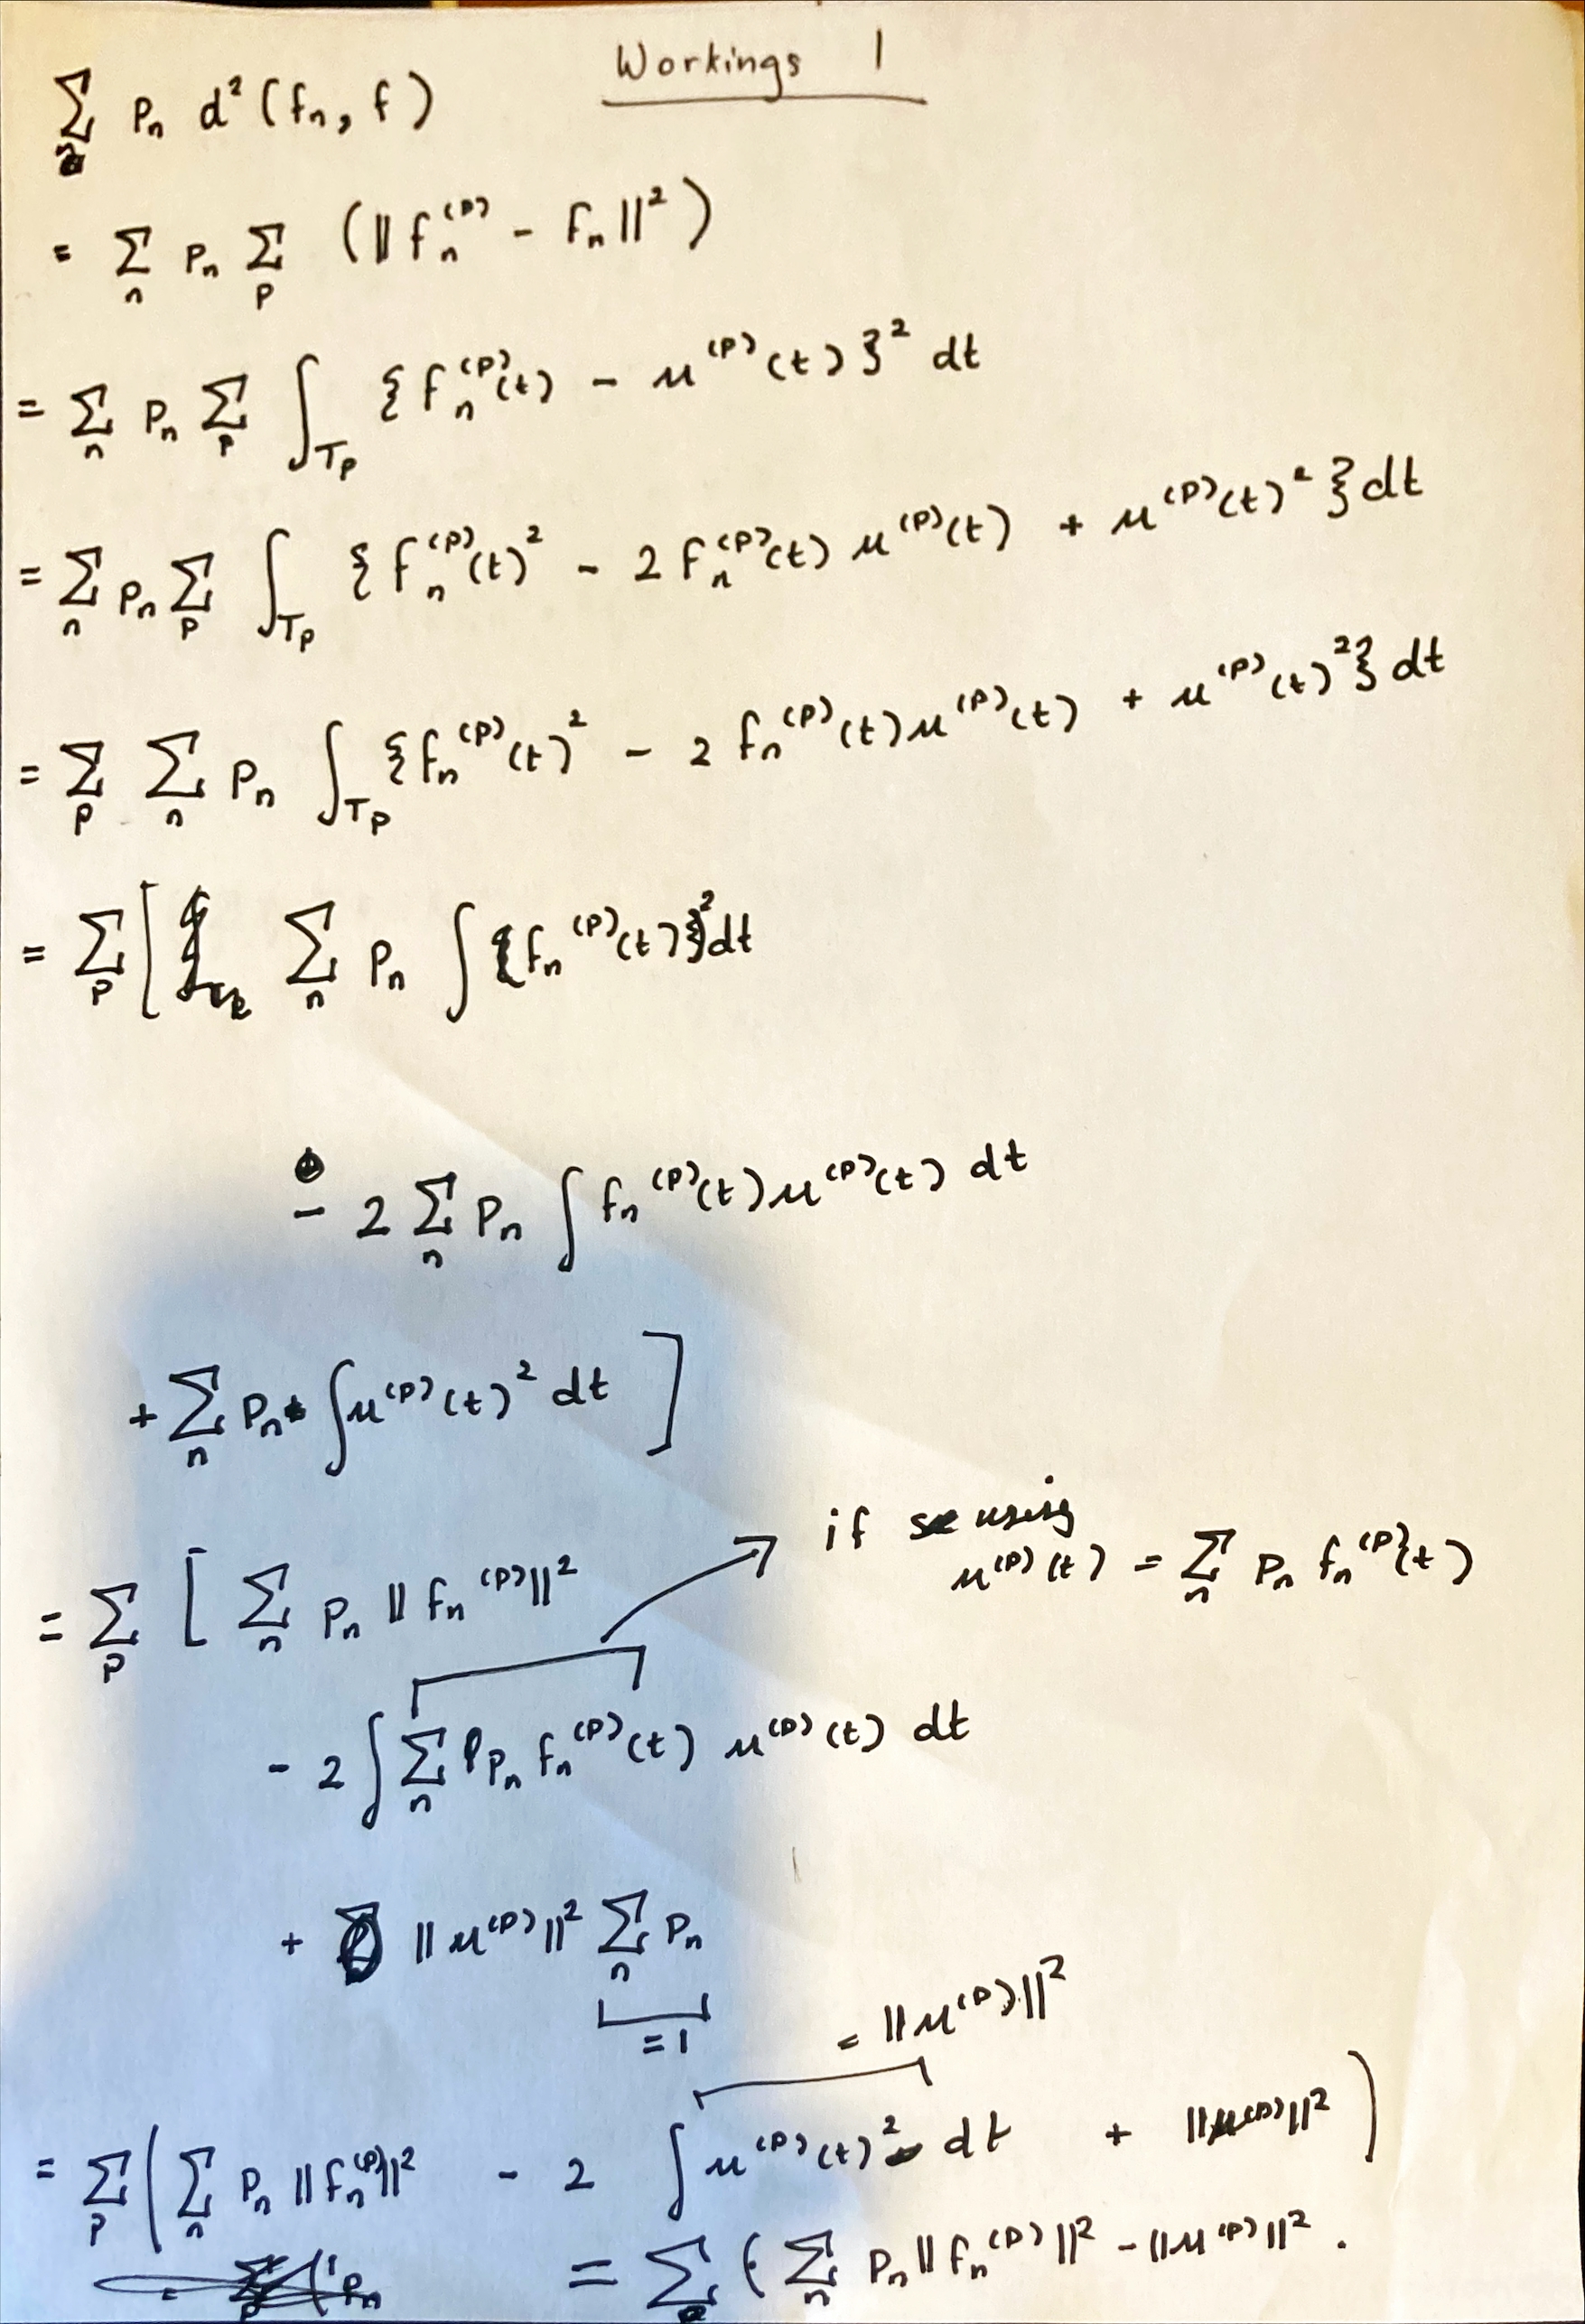 Workings 1
Σ Pn d²(fn, f)
= Σn Pn Σp (‖fn^(p) - fn‖²)
= Σn Pn Σp ∫Tp {fn^(p)(t) - μ^(p)(t)}² dt
= Σn Pn Σp ∫Tp {fn^(p)(t)² - 2 fn^(p)(t) μ^(p)(t) + μ^(p)(t)²} dt
= Σp Σn Pn ∫Tp {fn^(p)(t)² - 2 fn^(p)(t) μ^(p)(t) + μ^(p)(t)²} dt
= Σp [ Σn Pn ∫ {fn^(p)(t)}² dt
- 2 Σn Pn ∫ fn^(p)(t) μ^(p)(t) dt
+ Σn Pn ∫ μ^(p)(t)² dt ]
if using
μ^(p)(t) = Σn Pn fn^(p)(t)
= Σp [ Σn Pn ‖fn^(p)‖²
- 2 ∫ Σn Pn fn^(p)(t) μ^(p)(t) dt
+ ‖μ^(p)‖² Σn Pn
= 1
= ‖μ^(p)‖²
= Σp ( Σn Pn ‖fn^(p)‖² - 2 ∫ μ^(p)(t)² dt + ‖μ^(p)‖² )
= Σp ( Σn Pn ‖fn^(p)‖² - ‖μ^(p)‖² .